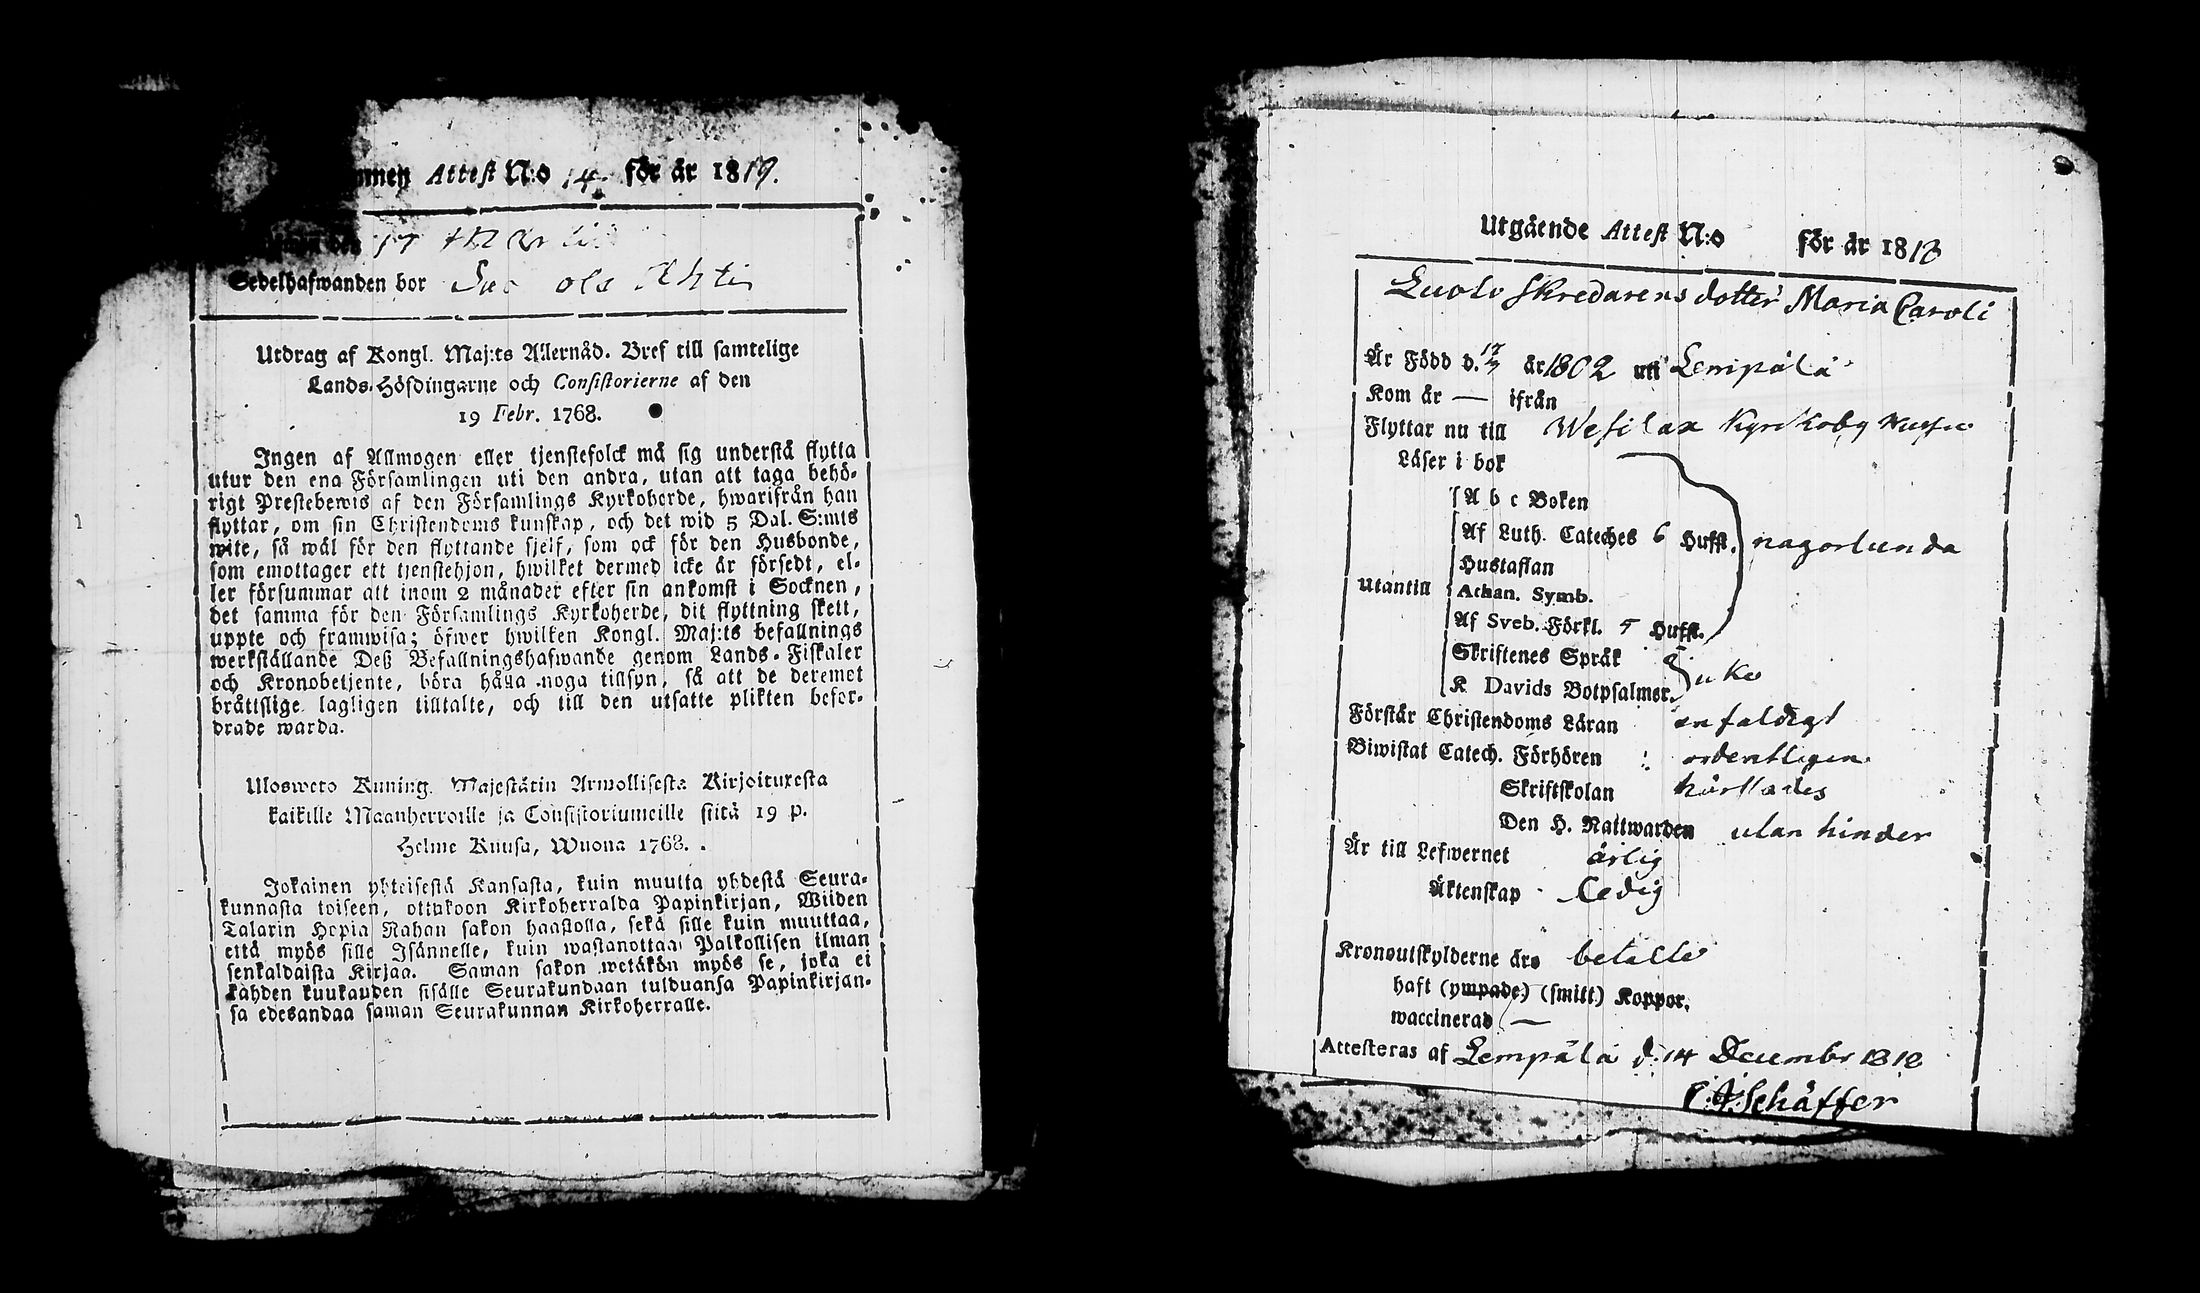 Attest N:o 14. för år 1819.
17
Sedelhafwanden bor Ahti
Utdrag af Kongl. Maj:ts Allernåd. Bref till samtelige
Lands-Höfdingarne och Consistorierne af den
19 Febr. 1768.
Ingen af Allmogen eller tjenstefolck må sig understå flytta
utur den ena Församlingen uti den andra, utan att taga behö-
rigt Prestebewis af den Församlings Kyrkoherde, hwarifrån han
flyttar, om sin Christendoms kunskap, och det wid 5 Dal. S:mts
wite, så wäl för den flyttande sjelf, som ock för den Husbonde,
som emottager ett tjenstehjon, hwilket dermed icke är försedt, el-
ler försummar att inom 2 månader efter sin ankomst i Socknen,
det samma för den Församlings Kyrkoherde, dit flyttning skett,
uppte och framwisa; öfwer hwilken Kongl. Maj:ts befallnings
werkställande Deß Befallningshafwande genom Lands-Fiskaler
och Kronobetjente, böra hålla noga tillsyn, så att de deremot
bråttslige lagligen tilltalte, och till den utsatte plikten befor-
drade warda.
Ulosweto Kuning. Majestätin Armollisesta Kirjoituxesta
kaikille Maanherroille ja Consistoriumeille siitä 19 p.
Helme Kuusa, Wuona 1768.
Jokainen yhteisestä Kansasta, kuin muutta yhdestä Seura-
kunnasta toiseen, ottakoon Kirkoherralda Papinkirjan, Wiiden
Talarin Hopia Rahan sakon haastolla, sekä sille kuin muuttaa,
että myös sille Isännelle, kuin wastanottaa Palkollisen ilman
senkaldaista Kirjaa. Saman sakon wetäkön myös se, joka ei
kahden kuukauden sisälle Seurakundaan tulduansa Papinkirjan-
sa edesandaa saman Seurakunnan Kirkoherralle.
Utgående Attest N:o för år 1818
Luolo Skredarens dotter Maria Caroli
Är Född d. 17/7 år 1802 uti Lempälä
Kom år — ifrån
Flyttar nu till Wesilax Kyrkoby
Läser i bok
A b c Boken
Af Luth. Cateches 6 Hufst. nagorlunda
Hustaflan
Utantill
Athan. Symb.
Af Sveb. Förkl. 5 Hufst.
Skriftenes Språk
K Davids Botpsalmer. icke
Förstår Christendoms Läran enfaldigt
Biwistat Catech. Förhören ordentligen
Skriftskolan
Den H. Nattwarden utan hinder
Är till Lefwernet ärlig
Äktenskap Ledig
Kronoutskylderne äro betalte
haft (ympade) (smitt) Koppor.
waccinerad —
Attesteras af Lempälä d. 14 Decembr 1818
C. J. Schäffer